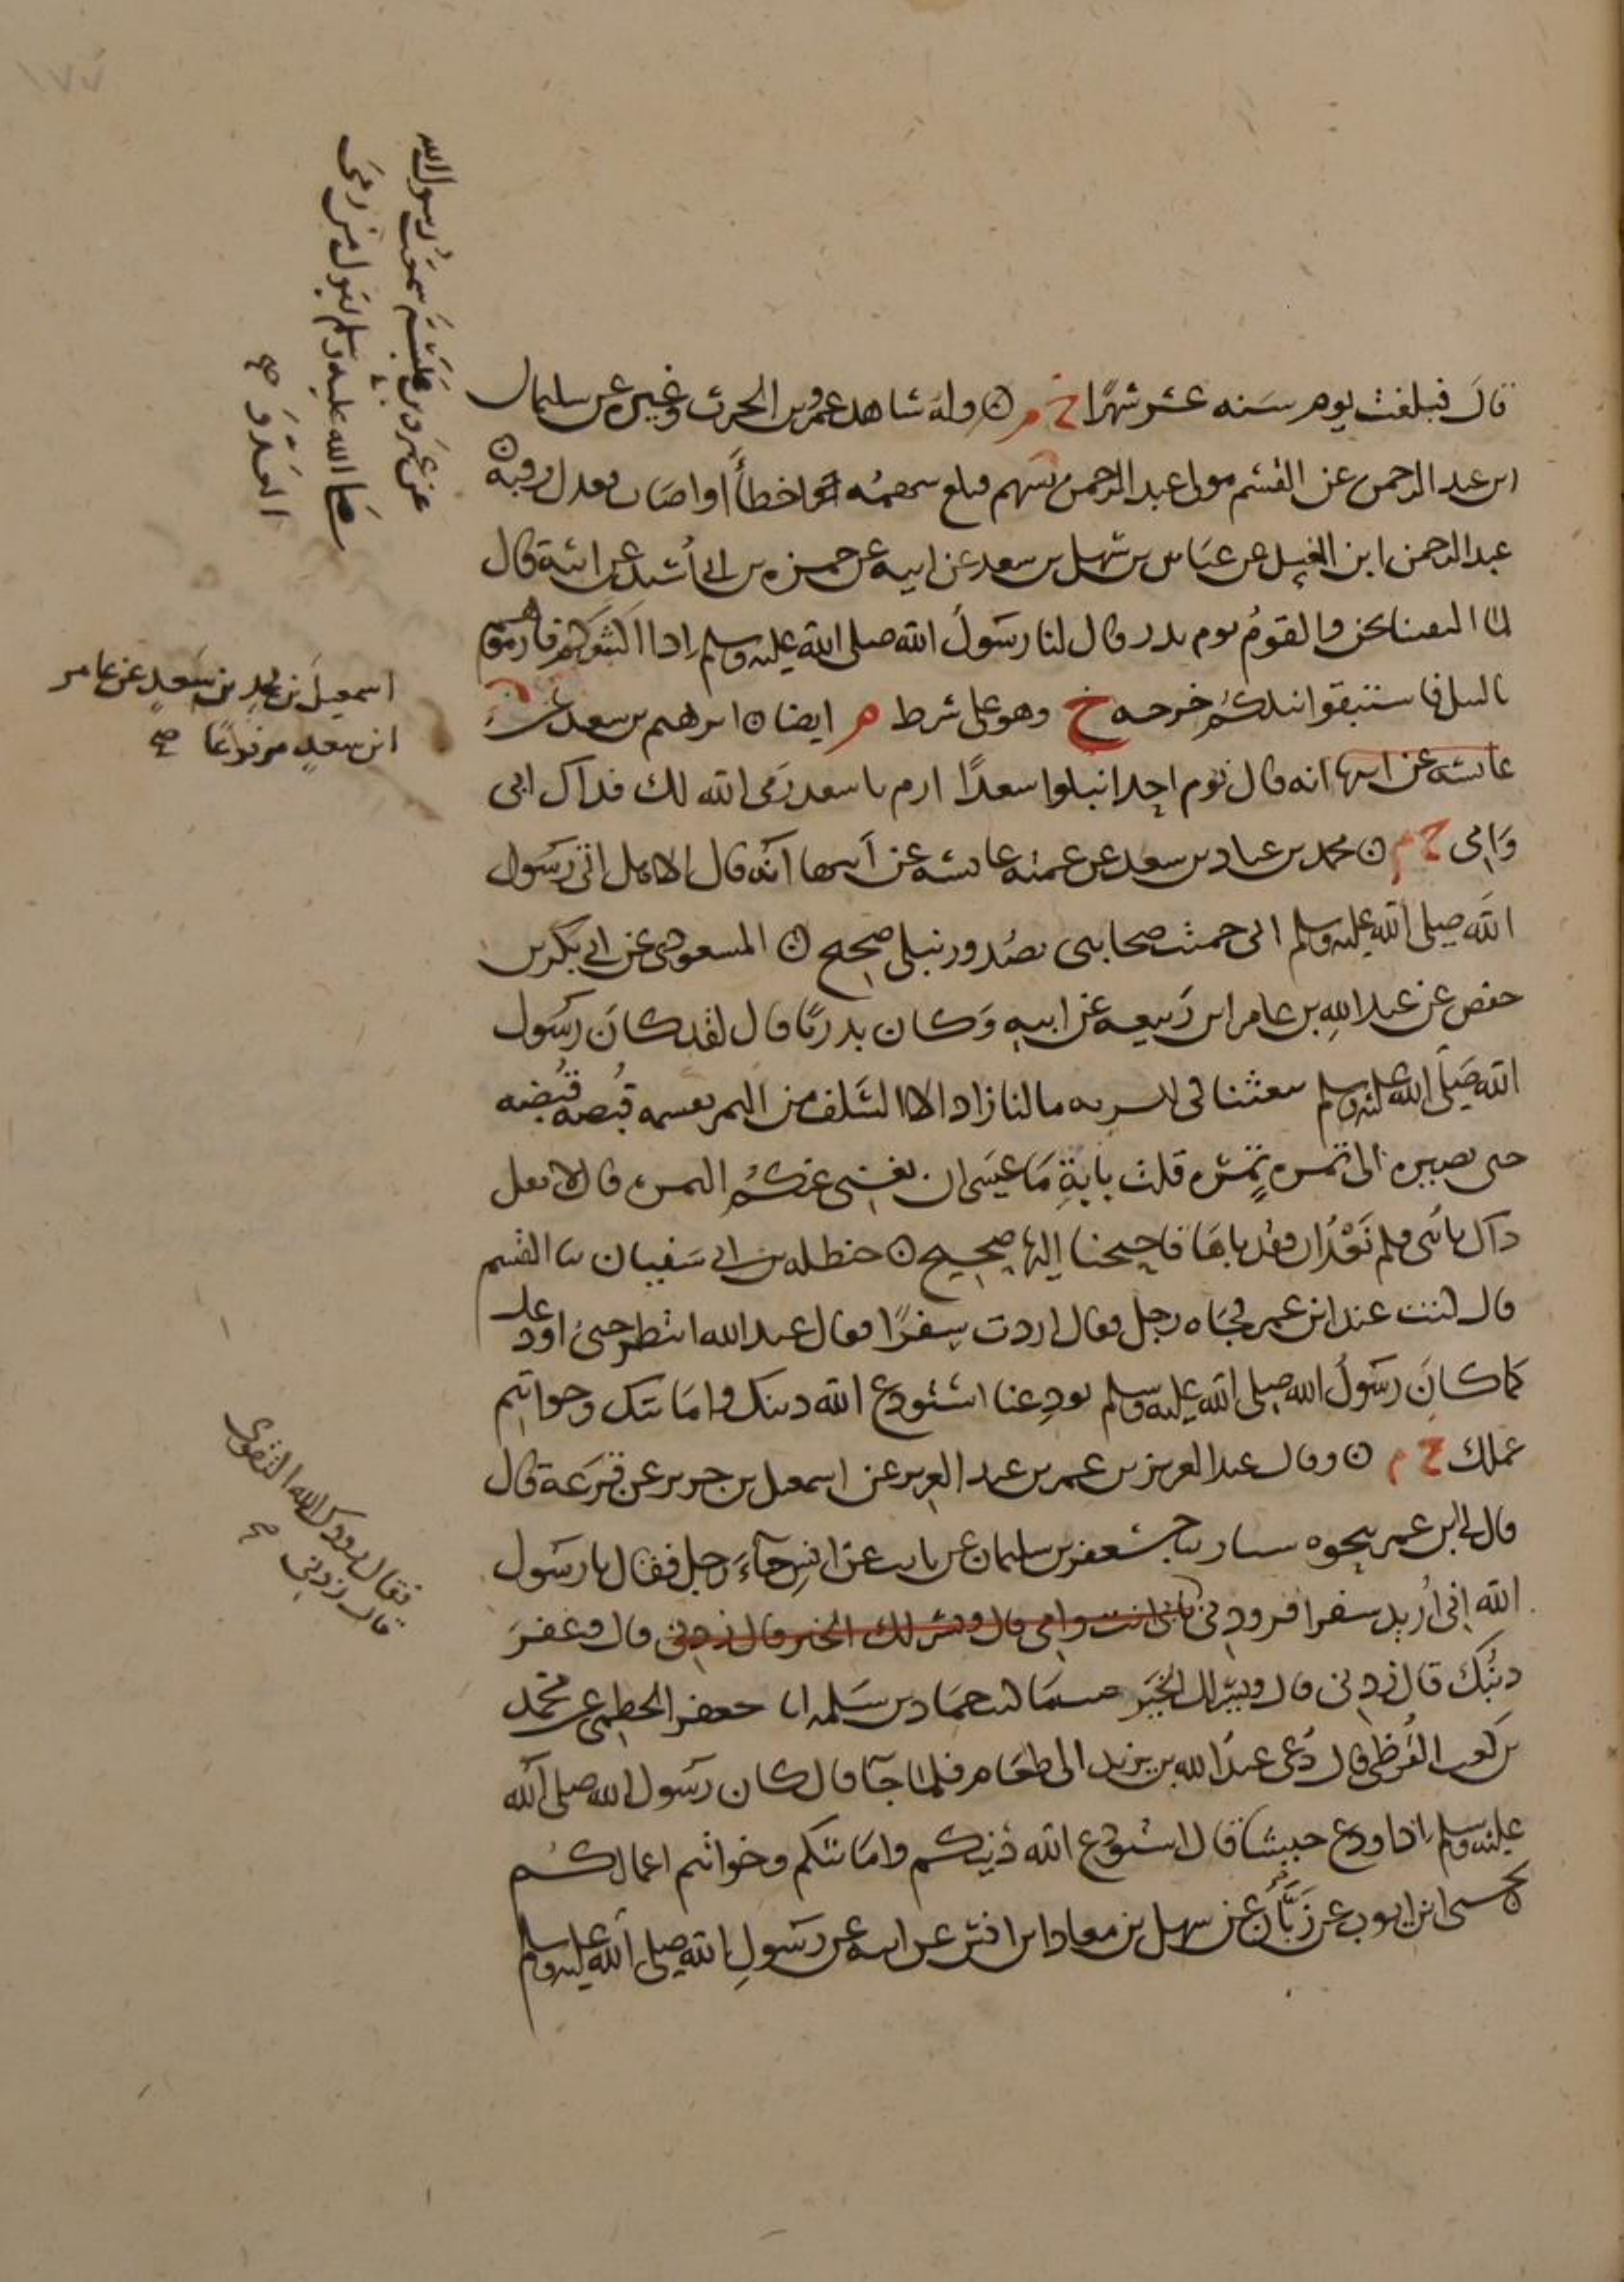 قال فبلغت يوم ستة عشر شهرًا خ م ۞ وله شاهد عمرو بن الحرث وغيره عن سليمان
ابن عبد الرحمن عن القسم مولى عبد الرحمن بسهم فبلغ سهمه اخطأ او اصاب فعدل رقبة ۞
عبد الرحمن ابن الغسيل عن عباس بن سهل بن سعد عن ابيه عن حمزة بن ابي أسيد عن ابيه قال
لما التقينا نحن والقوم يوم بدر قال لنا رسول الله صلى الله عليه وسلم اذا اكثبوكم فارموهم
بالنبل فاستبقوا نبلكم خرجه خ وهو على شرط م ايضا ۞ ابرهيم بن سعد عن
عائشه عن ابيها انه قال يوم احد انبلوا سعدًا ارم يا سعد رمى الله لك فداك ابي
وامي خ م ۞ محمد بن عباد بن سعد عن عمته عائشه عن ابيها انه قال الا هل اتى رسول
الله صلى الله عليه وسلم اني حميت صحابتي بصدور نبلي صحيح ۞ المسعودي عن ابي بكر بن
حفص عن عبد الله بن عامر ابن ربيعه عن ابيه وكان بدريًا قال لقد كان رسول
الله صلى الله عليه وسلم يبعثنا في السريه ما لنا زاد الا السلف من التمر نقسمه قبضه قبضه
حتى يصير الى تمره تمره قلت يا أبة ما عسى ان تغني عنكم التمره قال لا تقل
ذاك يا بني فلم نعد ان فقدناها فاحتجنا اليها صحيح ۞ حنظله بن ابي سفيان ثنا القسم
قال كنت عند ابن عمر فجاه رجل فقال اردت سفرًا فقال عبد الله انتظر حتى اودعك
كما كان رسول الله صلى الله عليه وسلم يودعنا استودع الله دينك وامانتك وخواتيم
عملك خ م ۞ وقال عبد العزيز بن عمر بن عبد العزيز عن اسمعيل بن جرير عن قزعة قال
قال لي ابن عمر نحوه سيار ثنا جعفر بن سليمان عن ثابت عن انس جاء رجل فقال يا رسول
الله اني أريد سفرا فزودني بابي انت وامي قال ويسر لك الخير قال زدني قال وغفر
ذنبك قال زدني قال ويسر لك الخير حيثما كنت حماد بن سلمه انا ابو جعفر الخطمي عن محمد
بن كعب القرظي قال دعي عبد الله بن يزيد الى طعام فلما جا قال كان رسول الله صلى الله
عليه وسلم اذا ودع جيشا قال استودع الله دينكم وامانتكم وخواتم اعمالكم
يحيى ابن ايوب عن زبان عن سهل بن معاذ ابن انس عن ابيه عن رسول الله صلى الله عليه وسلم
عن عمرو بن عبسه سمعت رسول الله
صلى الله عليه وسلم يقول من رمى
العدو صح
اسمعيل بن محمد بن سعد عن عامر
ابن سعد مرفوعًا صح
فقال زودك الله التقوى
قال زدني صح